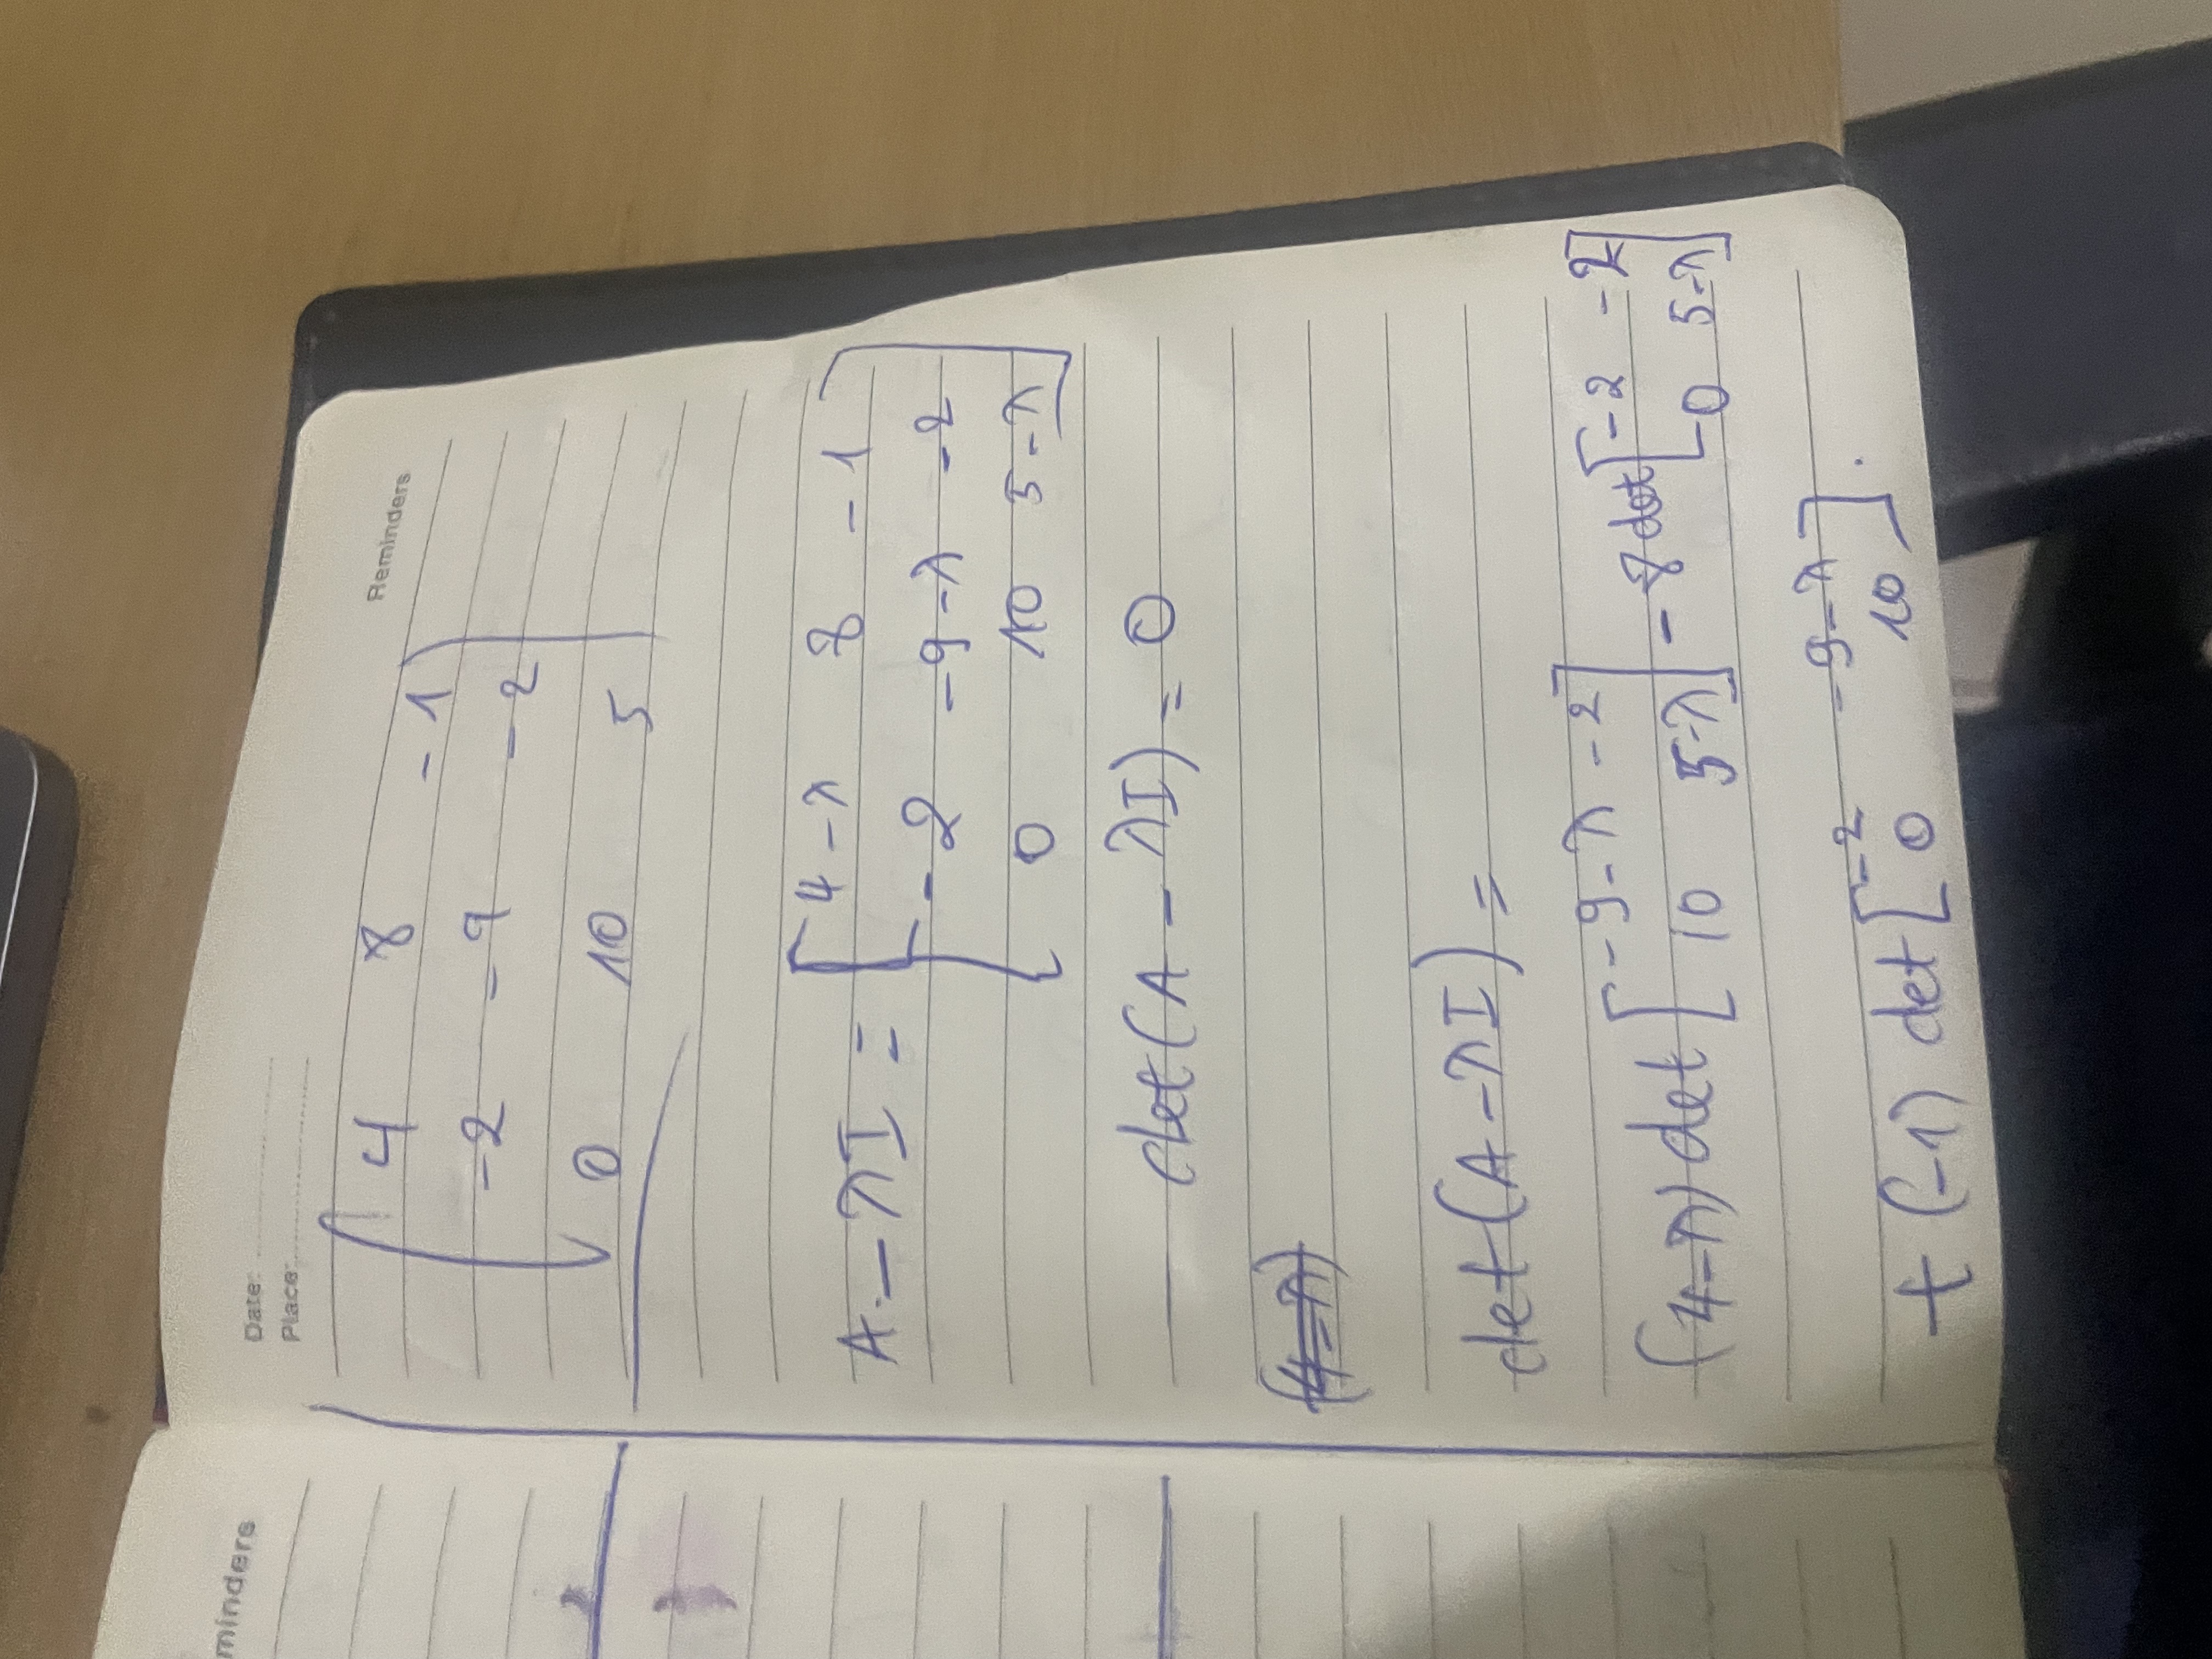 minders
Date:
Place:
Reminders
4 8 -1
-2 -9 -2
0 10 5
A - λI = [4-λ 8 -1
-2 -9-λ -2
0 10 5-λ]
det(A - λI) = 0
(4-λ)
det(A-λI) =
(4-λ) det [-9-λ -2 10 5-λ] - 8 det [-2 -2 0 5-λ]
+ (-1) det [-2 -9-λ 0 10].